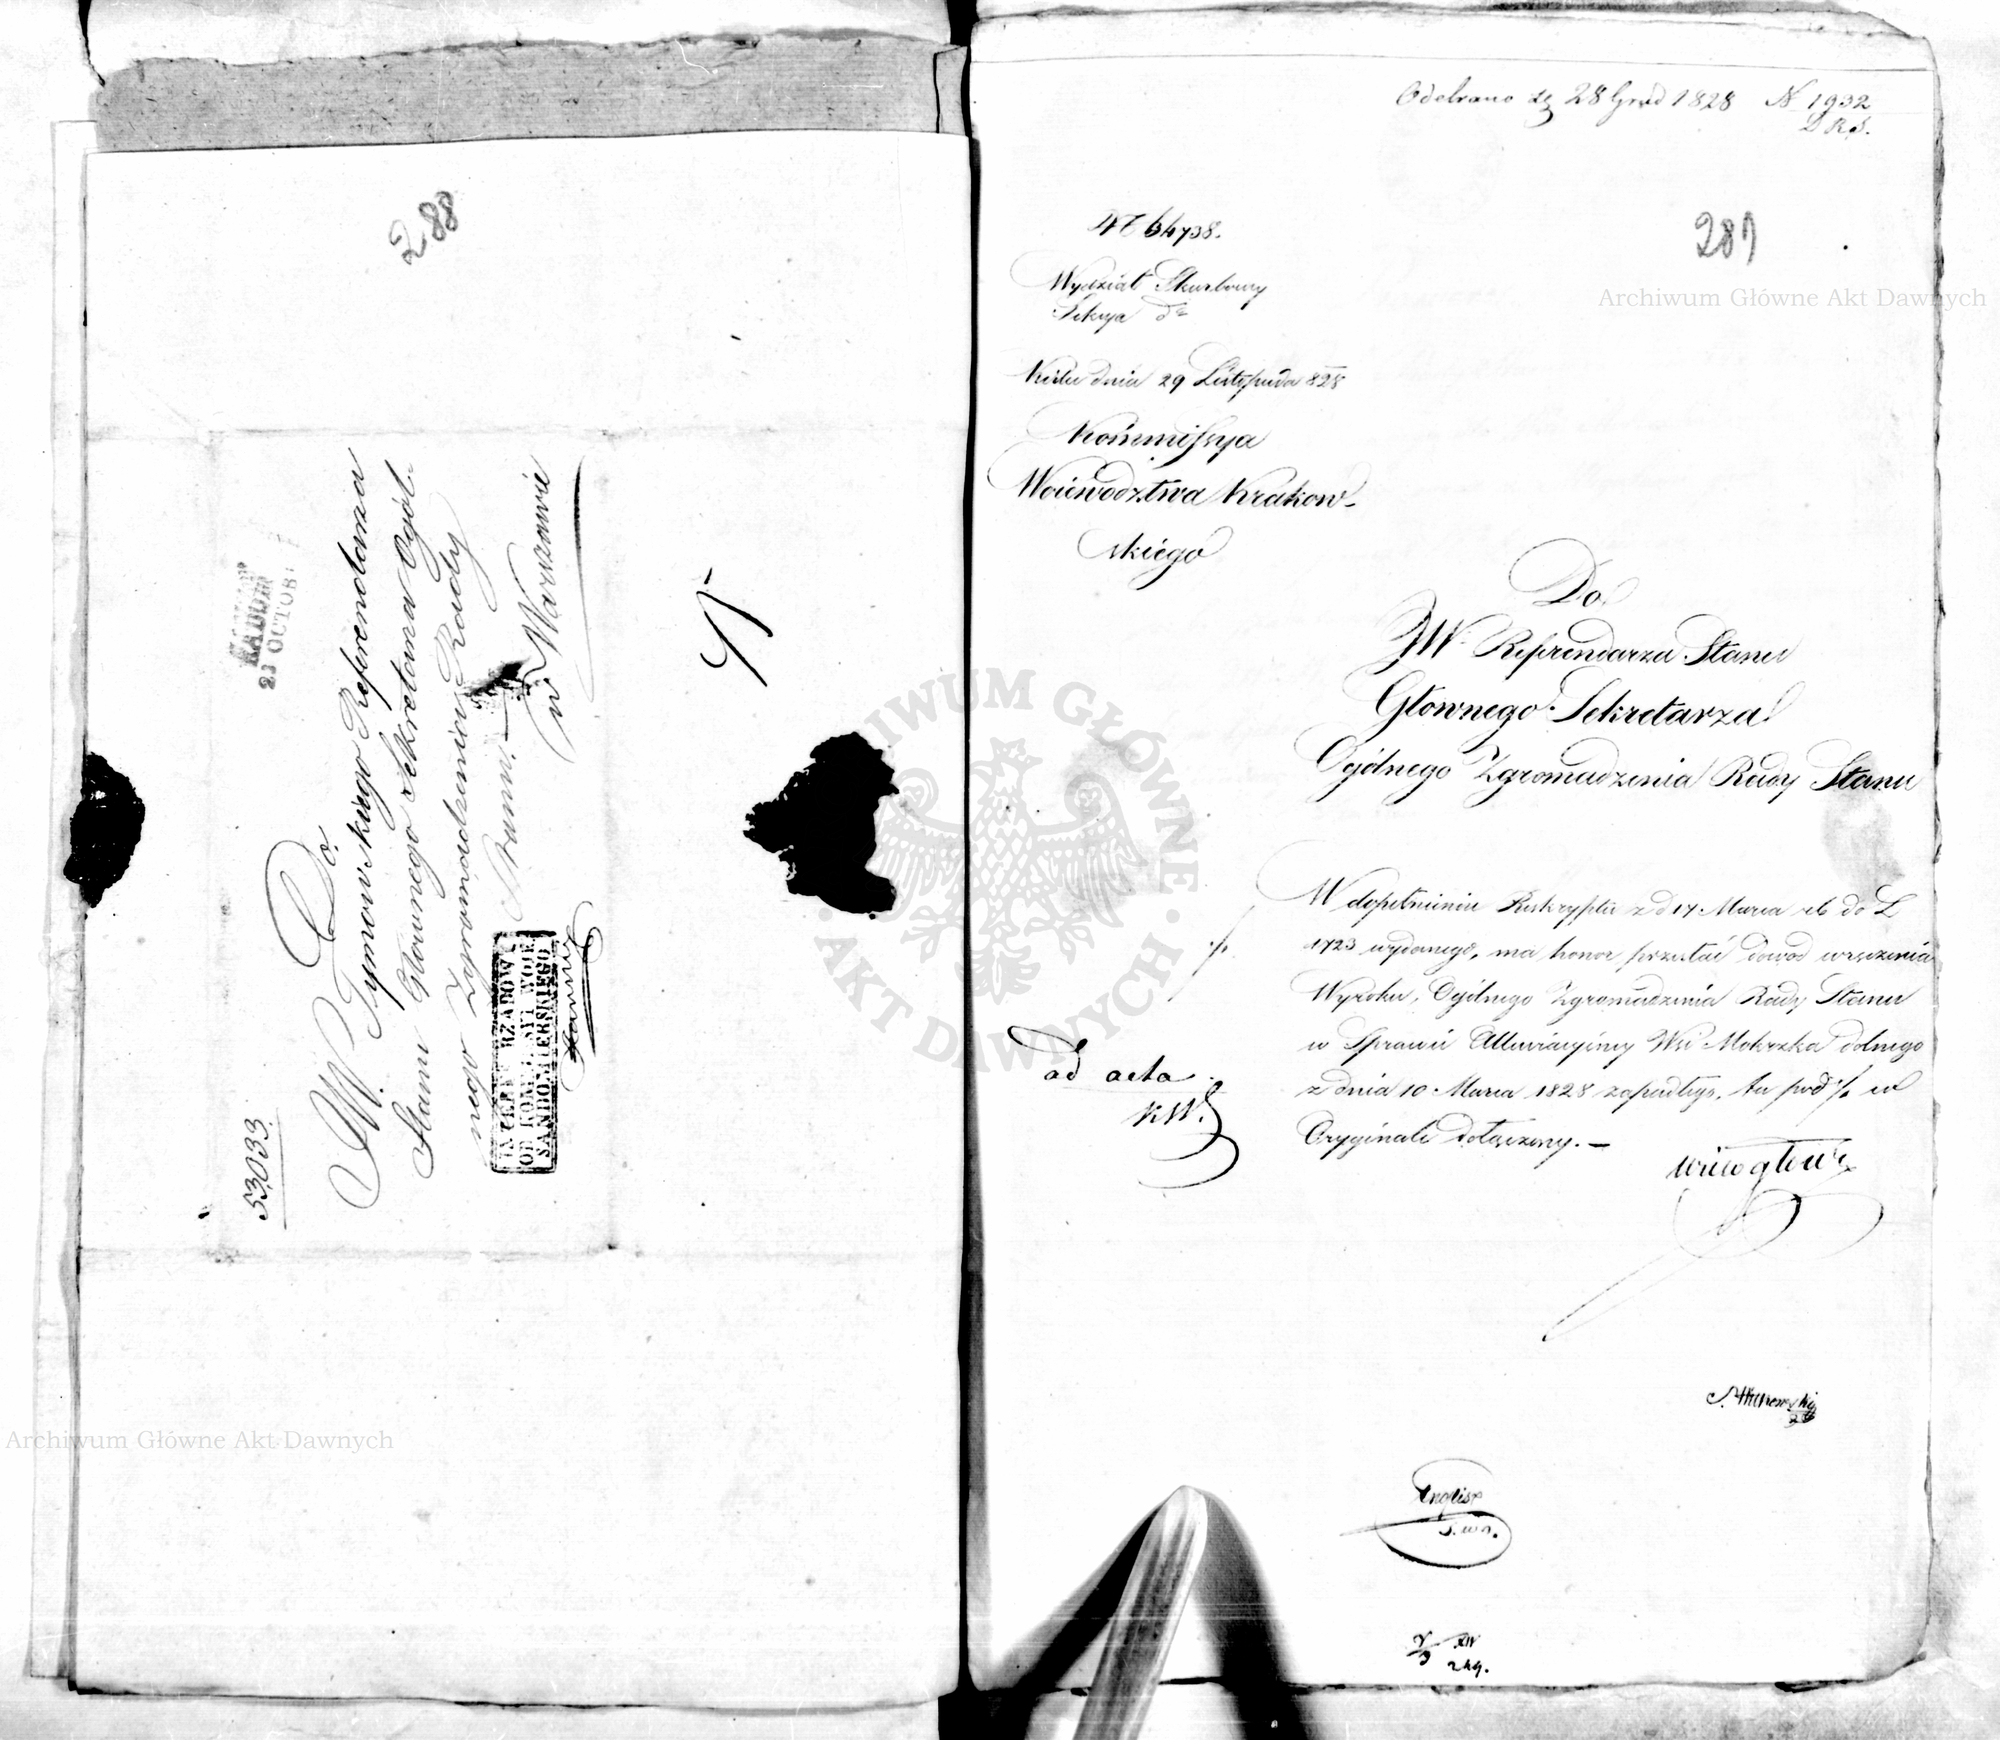 288
RADOM
23 OCTOB:
53,033.
Do
JW. Tymowskiego Referendarza
Stanu Głownego Sekretarza Ogól-
nego Zgromadzenia Rady
Stanu. —
w Warszawie
INTERES RZĄDOWY
OD KOMMISSYI WOIEW
SANDOMIERSKIEGO
Odebrano dq 28 Grud 1828 N 1932
D R S.
289
N 64738.
Wydział Skarbowy
Sekcya
Kielce dnia 29 Listopada 828
Kommissya
Woiewodztwa Krakow-
skiego
Do
JW. Referendarza Stanu
Głownego Sekretarza
Ogólnego Zgromadzenia Rady Stanu
W dopełnieniu Reskryptu z d 17 Marca rb do L
1723 wydanego, ma honor przesłać dowod wręczenia
Wyroku, Ogólnego Zgromadzenia Rady Stanu
w Sprawie Alluwiacyiney Wsi Mokrzka dolnego
z dnia 10 Marca 1828 zapadłego, tu pod ·/. w
Oryginale dołączony. —
·/.
ad acta
KW.
Wielogłows
Englisz
249.
Archiwum Główne Akt Dawnych
Archiwum Główne Akt Dawnych
ARCHIWUM GŁÓWNE · AKT DAWNYCH ·